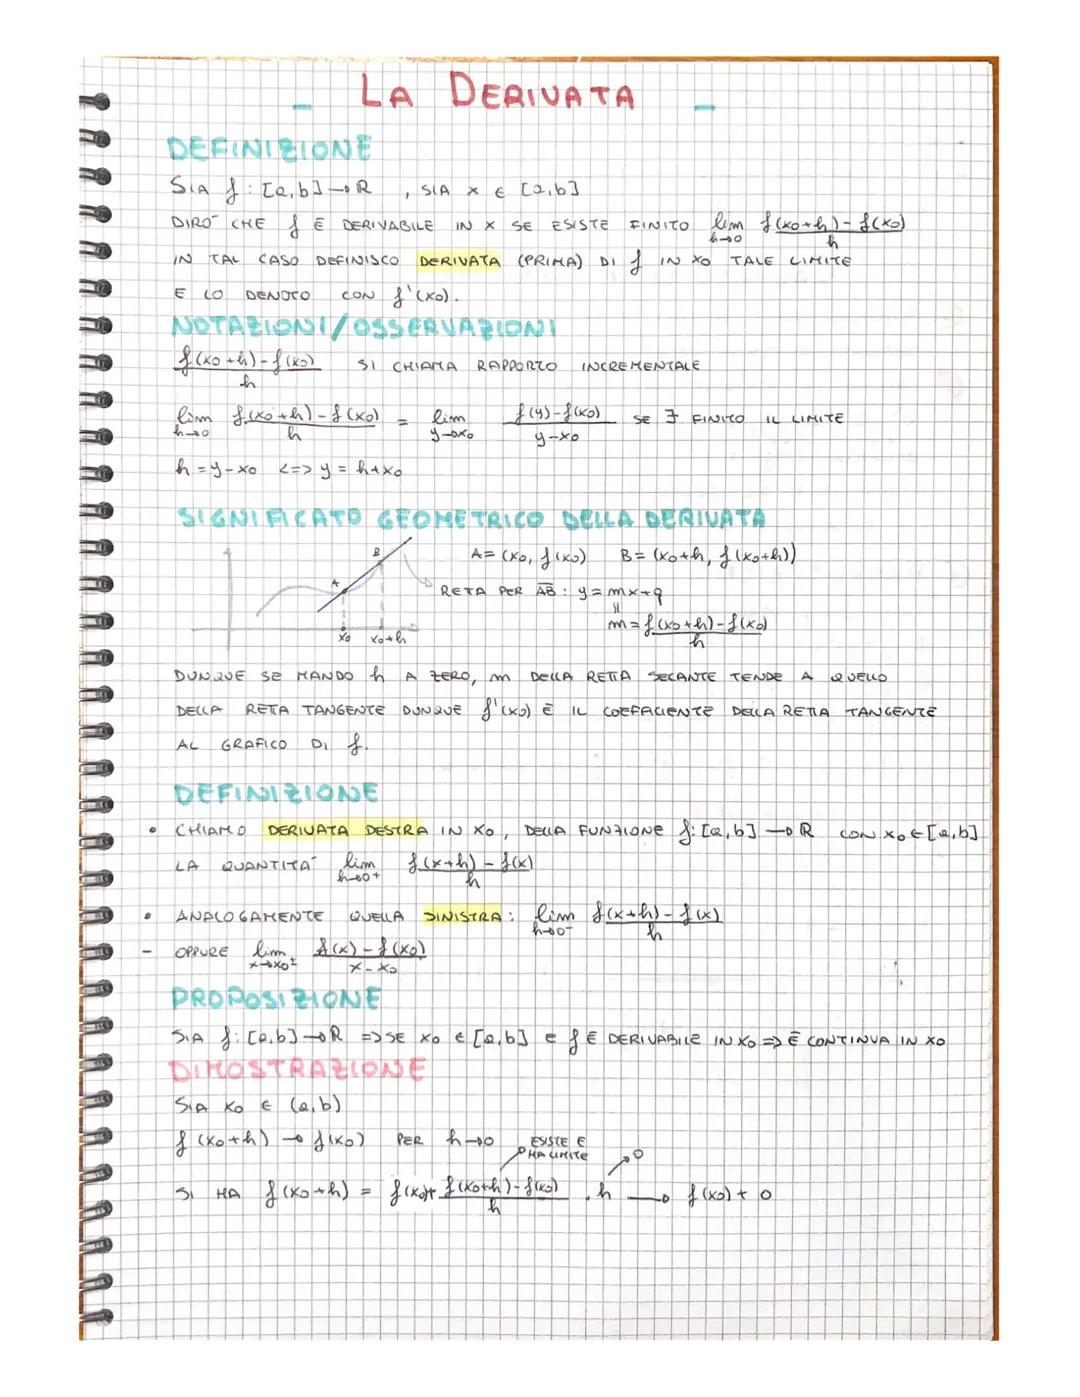 LA DERIVATA
DEFINIZIONE
SIA f: [a,b] → R , SIA x ∈ [a,b]
DIRO' CHE f È DERIVABILE IN x SE ESISTE FINITO lim h→0 f(x0+h)-f(x0) / h
IN TAL CASO DEFINISCO DERIVATA (PRIMA) DI f IN x0 TALE LIMITE
E LO DENOTO CON f'(x0).
NOTAZIONI/OSSERVAZIONI
f(x0+h)-f(x0) / h SI CHIAMA RAPPORTO INCREMENTALE
lim h→0 f(x0+h)-f(x0) / h = lim y→x0 f(y)-f(x0) / y-x0 SE ∃ FINITO IL LIMITE
h=y-x0 <=> y = h+x0
SIGNIFICATO GEOMETRICO DELLA DERIVATA
A= (x0, f(x0) B= (x0+h, f(x0+h))
B
A
x0 x0+h
RETA PER AB: y=mx+q
m= f(x0+h)-f(x0) / h
DUNQUE SE MANDO h A ZERO, m DELLA RETTA SECANTE TENDE A QUELLO
DELLA RETTA TANGENTE DUNQUE f'(x0) È IL COEFFICIENTE DELLA RETTA TANGENTE
AL GRAFICO DI f.
DEFINIZIONE
• CHIAMO DERIVATA DESTRA IN x0, DELLA FUNZIONE f: [a,b] → R CON x0 ∈ [a,b]
LA QUANTITA' lim h→0+ f(x+h)-f(x) / h
• ANALOGAMENTE QUELLA SINISTRA: lim h→0- f(x+h)-f(x) / h
- OPPURE lim x→x0± f(x)-f(x0) / x-x0
PROPOSIZIONE
SIA f: [a,b] → R => SE x0 ∈ [a,b] e f È DERIVABILE IN x0 => È CONTINUA IN x0
DIMOSTRAZIONE
SIA x0 ∈ (a,b)
f(x0+h) → f(x0) PER h→0
ESISTE E
HA LIMITE
0
SI HA f(x0+h) = f(x0)+ f(x0+h)-f(x0) / h . h → f(x0)+0